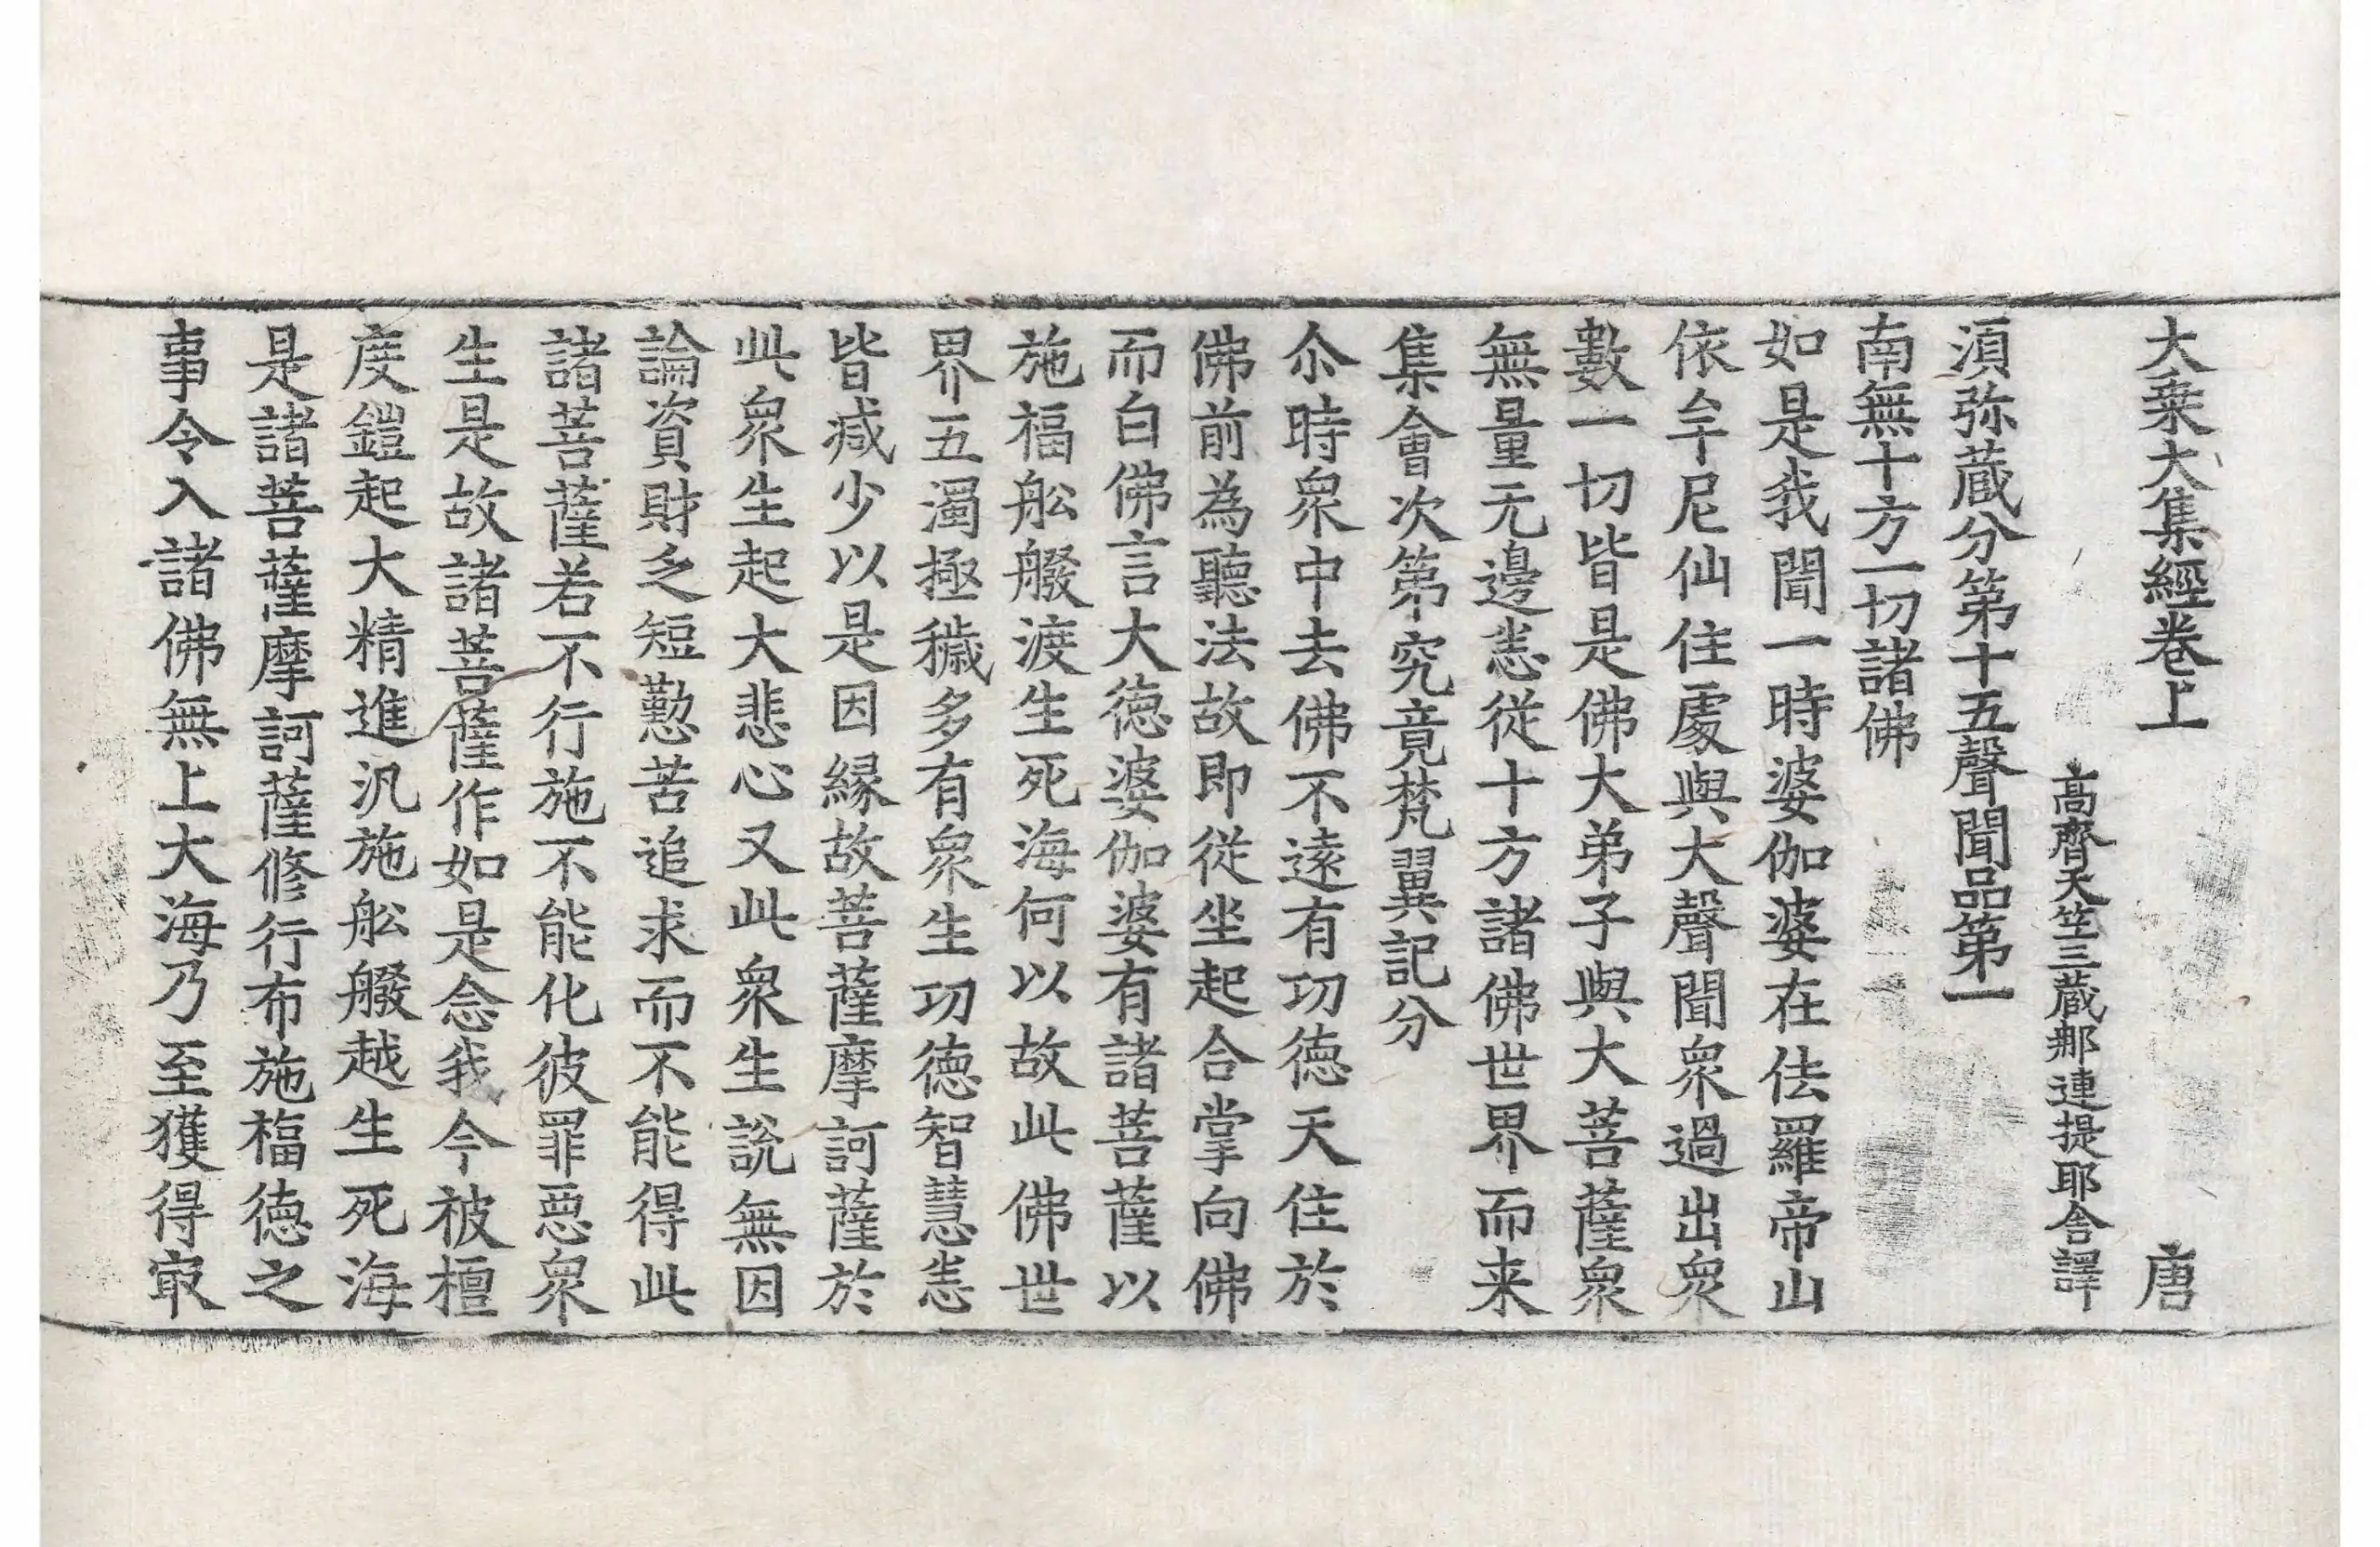 大乗大集經卷上 唐
高齊天竺三蔵郍連提耶舎譯
湏弥蔵分第十五聲聞品第一
南無十方一切諸佛
如是我聞一時婆伽婆在佉羅帝山
依牟尼仙住處與大聲聞衆過出衆
數一切皆是佛大弟子與大菩薩衆
無量无邊悉従十方諸佛世界而来
集會次第究竟梵翼記分
尒時衆中去佛不遠有功徳天住於
佛前為聽法故即従坐起合掌向佛
而白佛言大徳婆伽婆有諸菩薩以
施福舩艘渡生死海何以故此佛世
界五濁極穢多有衆生功徳智慧悉
皆减少以是因縁故菩薩摩訶薩於
此衆生起大悲心又此衆生説無因
論資財乏短懃苦追求而不能得此
諸菩薩若不行施不能化彼罪惡衆
生是故諸菩薩作如是念我今被檀
度鎧起大精進汎施舩艘越生死海
是諸菩薩摩訶薩修行布施福徳之
事令入諸佛無上大海乃至獲得㝡